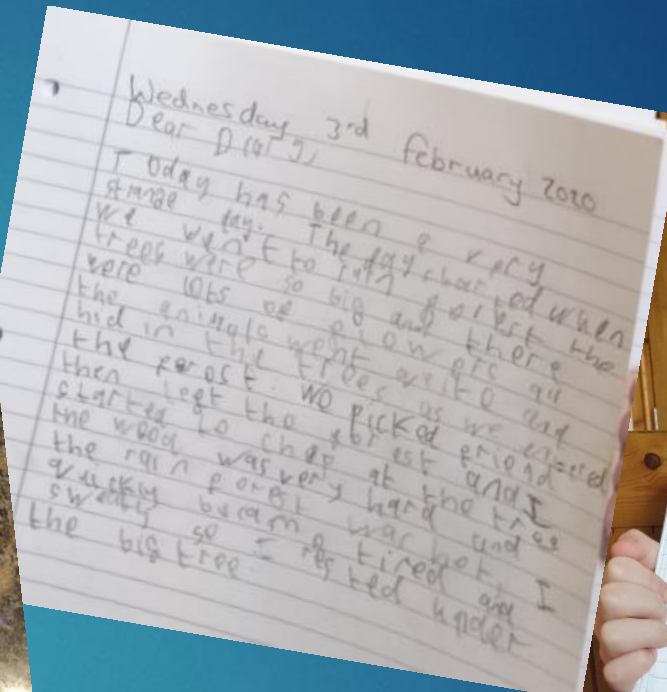 Wednesday 3rd February 2020
Dear Diary,
Today has been a very
strange day. The day started when
we went to rain forest the
trees were so big and there
were lots of flowers all
the animals went quite and
hid in the trees as we entered
the forest. We picked friend
then left the forest and I
started to chop at the tree
the wood was very hard and
the rain forest was hot. I
quickly becam tired and
sweaty so I rested under
the big tree.